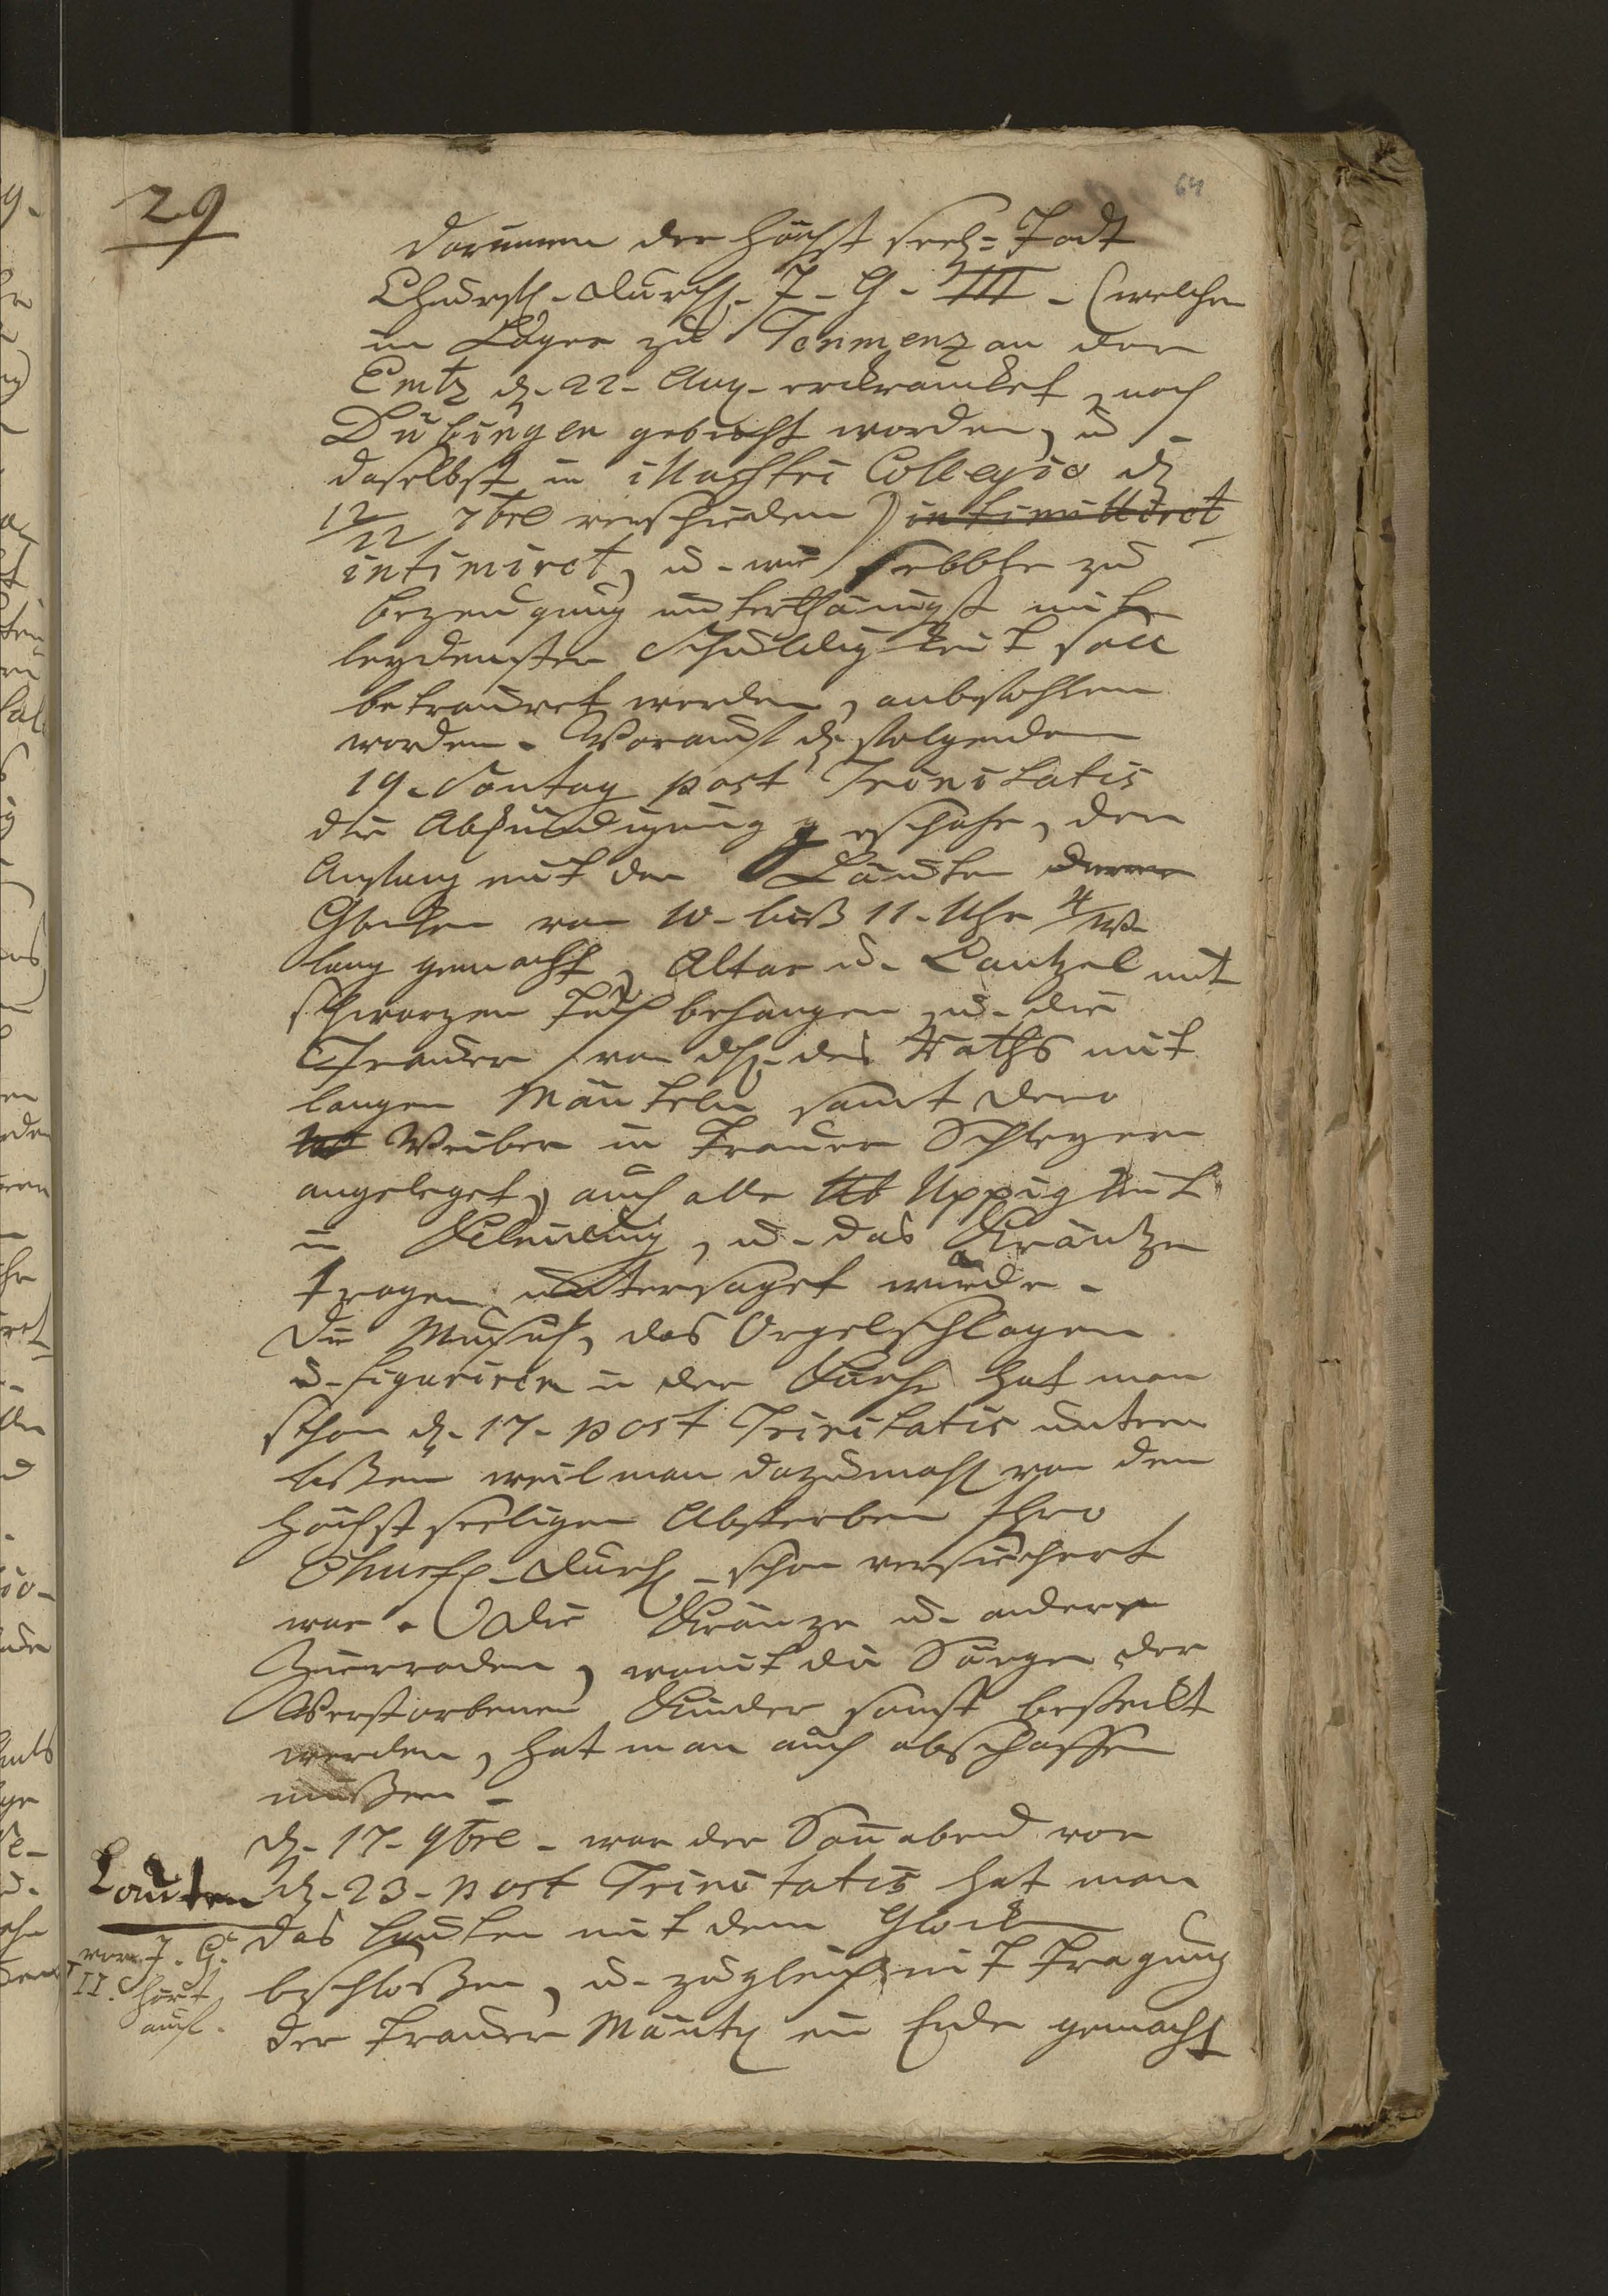 29
64
darinnen der höchst seel: Todt
Churfl. Durchl. J. G. III. (welcher
im Läger zu Tenmenz an der
Emtz d. 22. Aug. erkrancket, nach
Dübingen gebracht worden, u.
daselbst in illustri Collegio d.
12/22 7bre verschieden) intimittiret
intimiret, u. wie selbte zu
bezeugung unterthänigst mit
leydenster Schuldigkeit soll
betrauret werden, anbefohlen
worden. Worauf d. folgenden
19. Sontag post Trinitatis
die Abkündigung geschahe, der
Anfang mit den Läuten derer
Glocken von 10. biß 11. Uhr 4/W.
lang gemacht, Altar u. Cantzel mit
schwarzen Tuch behangen, u. die
Trauer von dh. des Raths mit
langen Mänteln samt dero
Weiber in Trauer Schleyern
angeleget, auch alle Uppigkeit
in Kleidung, u. das Kräntze
tragen untersaget wurde.
Die Music, das Orgelschlagen
u. figuriren in der Kirche hat man
schon d. 17. post Trinitatis unter
laßen weil man dazumahl von dem
höchst seeligen Absterben Ihro
Churfl. Durchl. schon versichert
war. Die Kränze u. andere
Zierraden, womit die Särge der
Verstorbenen Kinder sonst besteckt
werden, hat man auch abschaffen
müßen.
d. 17. 9bre. war der Sonnabend vor
d. 23. post Trinitatis hat man
Lauten
das Lauten mit dem Glock
von J. G.
beschloßen, u. zugleich mit Tragung
II. hört
auf.
der Trauer Mäntel ein Ende gemacht